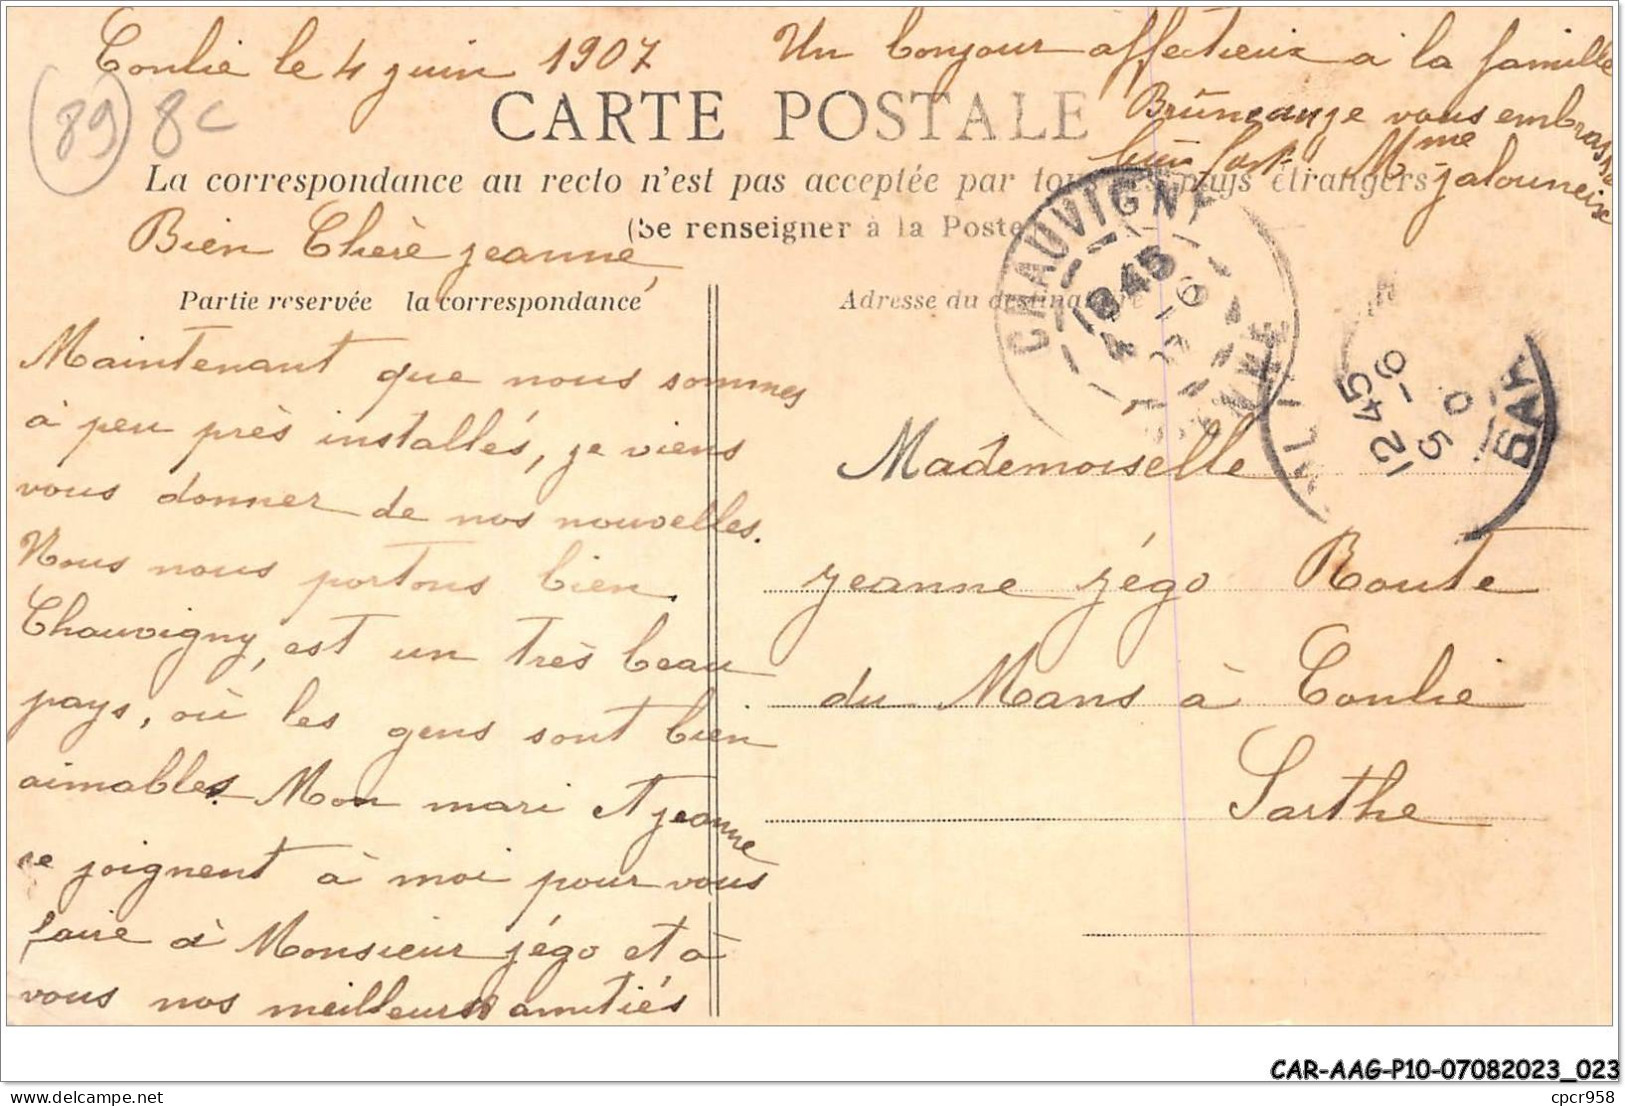 Conlie le 4 juin 1907
Un bonjour affectueux à la famille
Brunçange vous embrasse
bien fort Mme Jalouneix
(89) 8c
CARTE POSTALE
La correspondance au recto n'est pas acceptée par tous les pays étrangers
(Se renseigner à la Poste
Bien Chère Jeanne,
Partie reservée la correspondance
Adresse du destinataire
Maintenant que nous sommes
à peu près installés, je viens
vous donner de nos nouvelles.
Nous nous portons bien.
Chauvigny, est un très beau
pays, où les gens sont bien
aimables. Mon mari et Jeanne
se joignent à moi pour vous
faire à Monsieur Jégo et à
vous nos meilleurs amitiés
CHAUVIGNY
VIENNE
1245
5-6
05
Mademoiselle
Jeanne Jégo Route
du Mans à Conlie
Sarthe
CAR-AAG-P10-07082023_023
delcampe.net
cpcr958